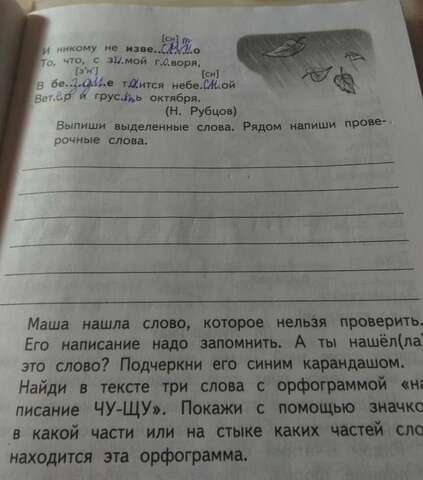 [сн]
И никому не изве..стн.о
То, что, с з.и.мой г.о.воря,
[з'н'] [сн]
В бе..здн..е т.а.ится небе..сн.ой
Вет.е.р и грус.т.ь октября.
(Н. Рубцов)
Выпиши выделенные слова. Рядом напиши прове-
рочные слова.
Маша нашла слово, которое нельзя проверить.
Его написание надо запомнить. А ты нашёл(ла)
это слово? Подчеркни его синим карандашом.
Найди в тексте три слова с орфограммой «на
писание ЧУ-ЩУ». Покажи с помощью значко
в какой части или на стыке каких частей сло
находится эта орфограмма.